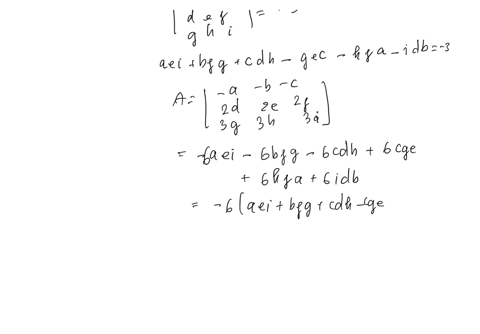 | d e f | =
g h i
aei + bfg + cdh - gec - hfa - idb = -3
A = [ -a -b -c
2d 2e 2f
3g 3h 3i ]
= -6aei - 6bfg - 6cdh + 6cge
+ 6hfa + 6idb
= -6(aei + bfg + cdh - cge